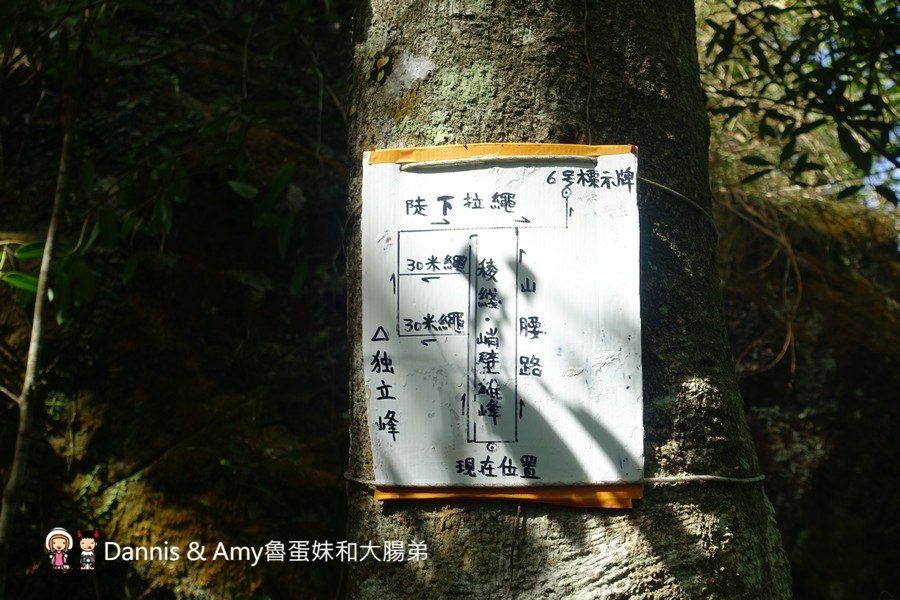 6号標示牌
陡下拉繩
30米繩
30米繩
稜綫·峭壁雄峰
山腰路
△独立峰
現在位置
Dannis & Amy魯蛋妹和大腸弟